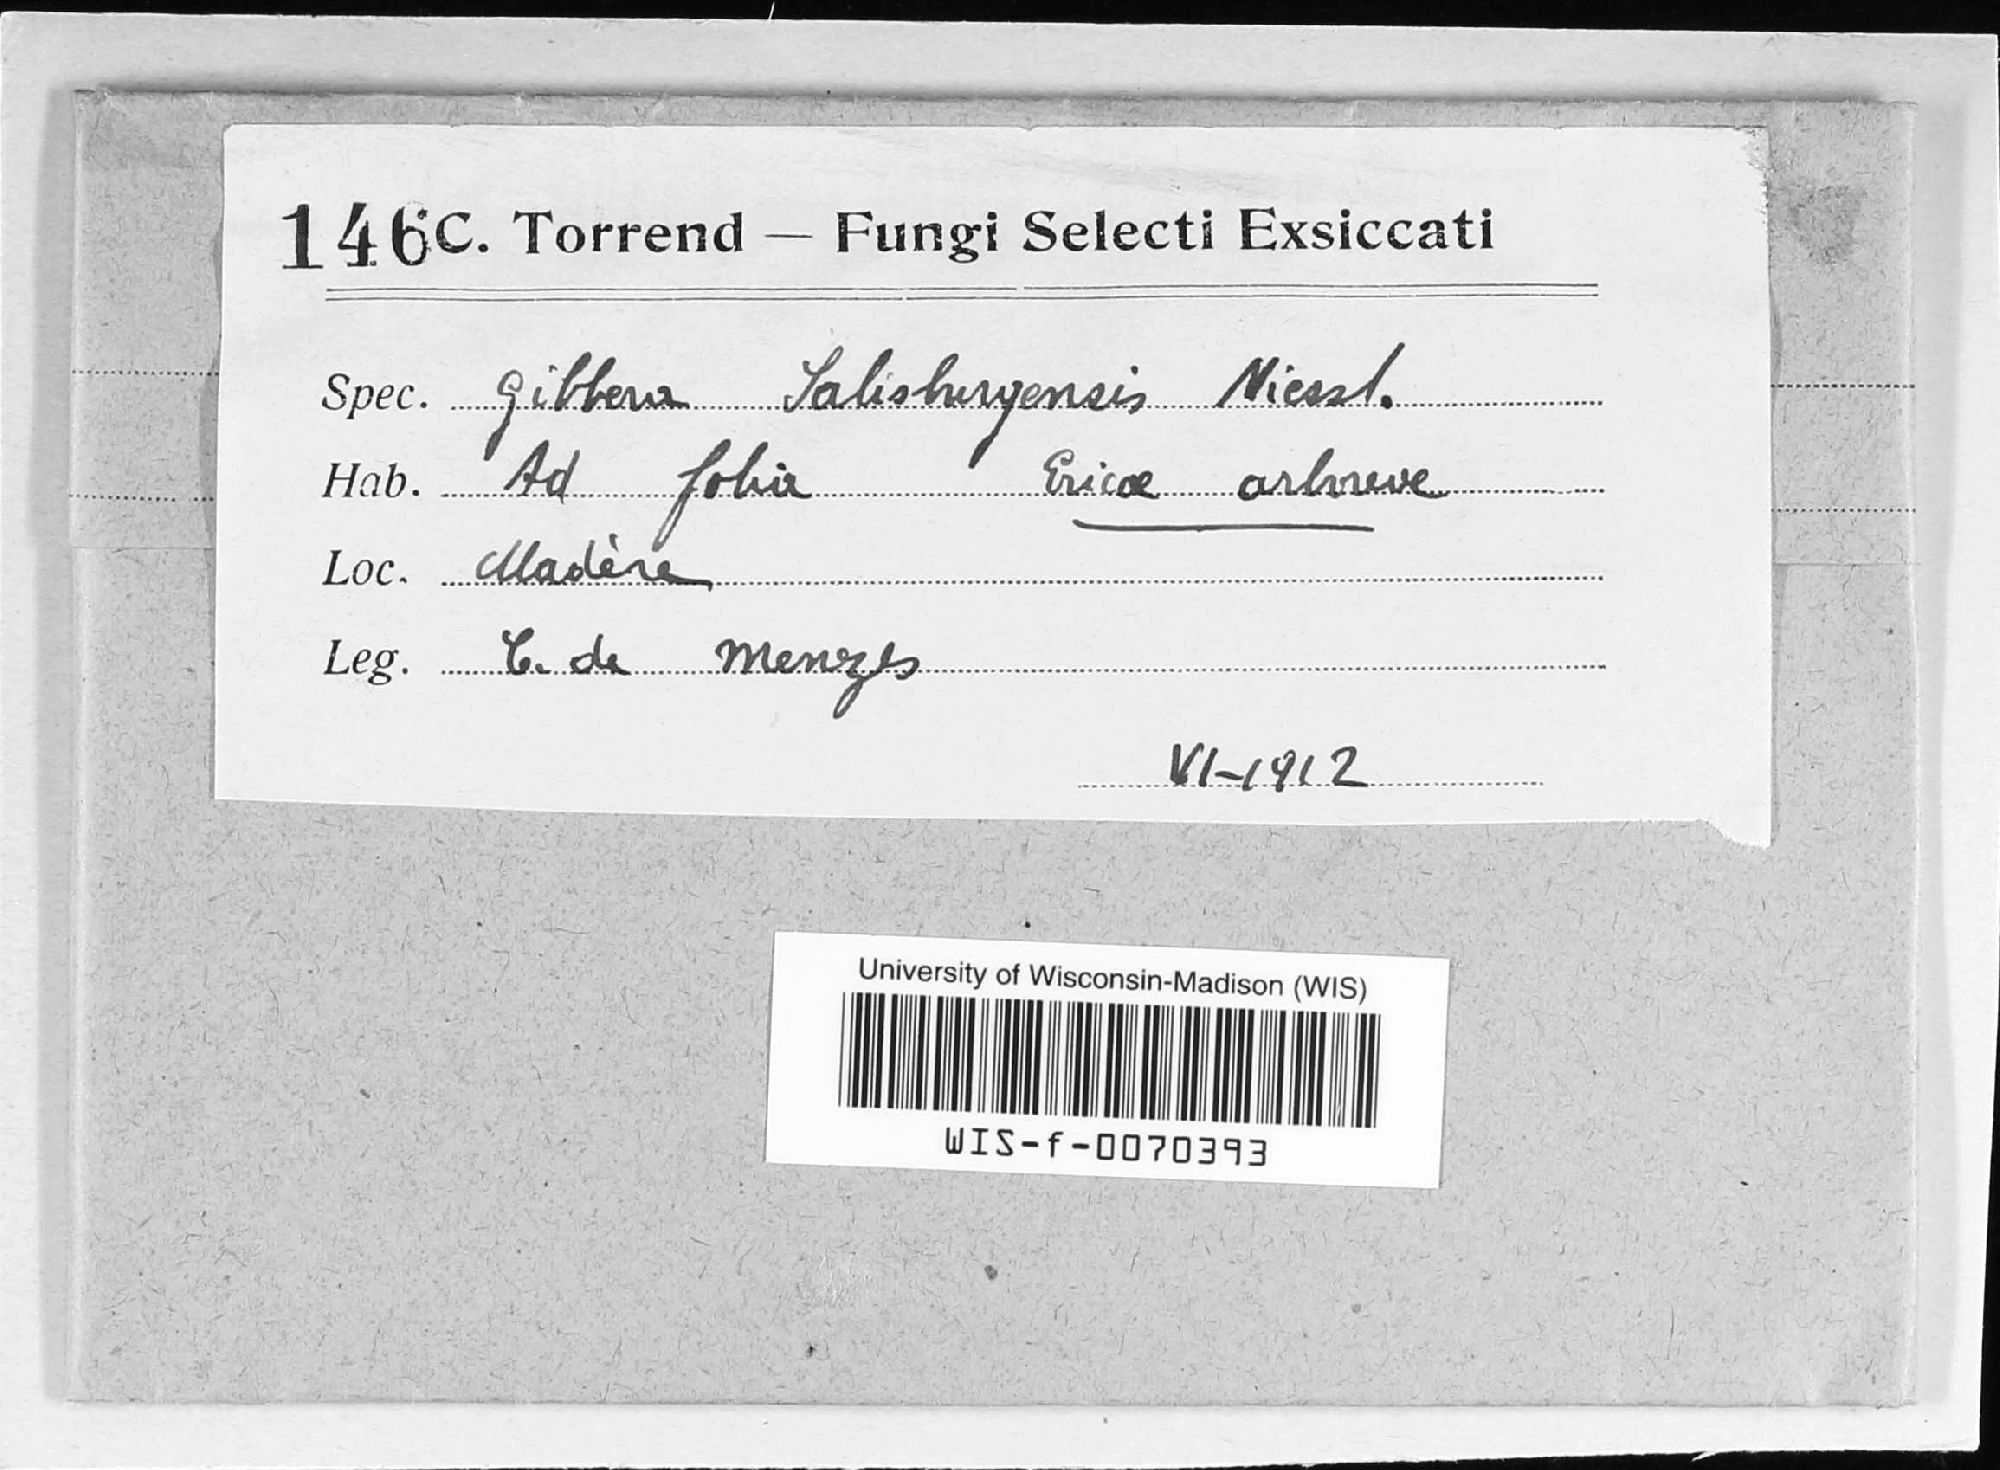 146 C. Torrend — Fungi Selecti Exsiccati
Spec. Gibbera Salisburgensis Niessl.
Hab. Ad folia Ericæ arboreæ
Loc. Madère
Leg. C. de Menezes
VI-1912
University of Wisconsin-Madison (WIS)
WIS-f-0070393